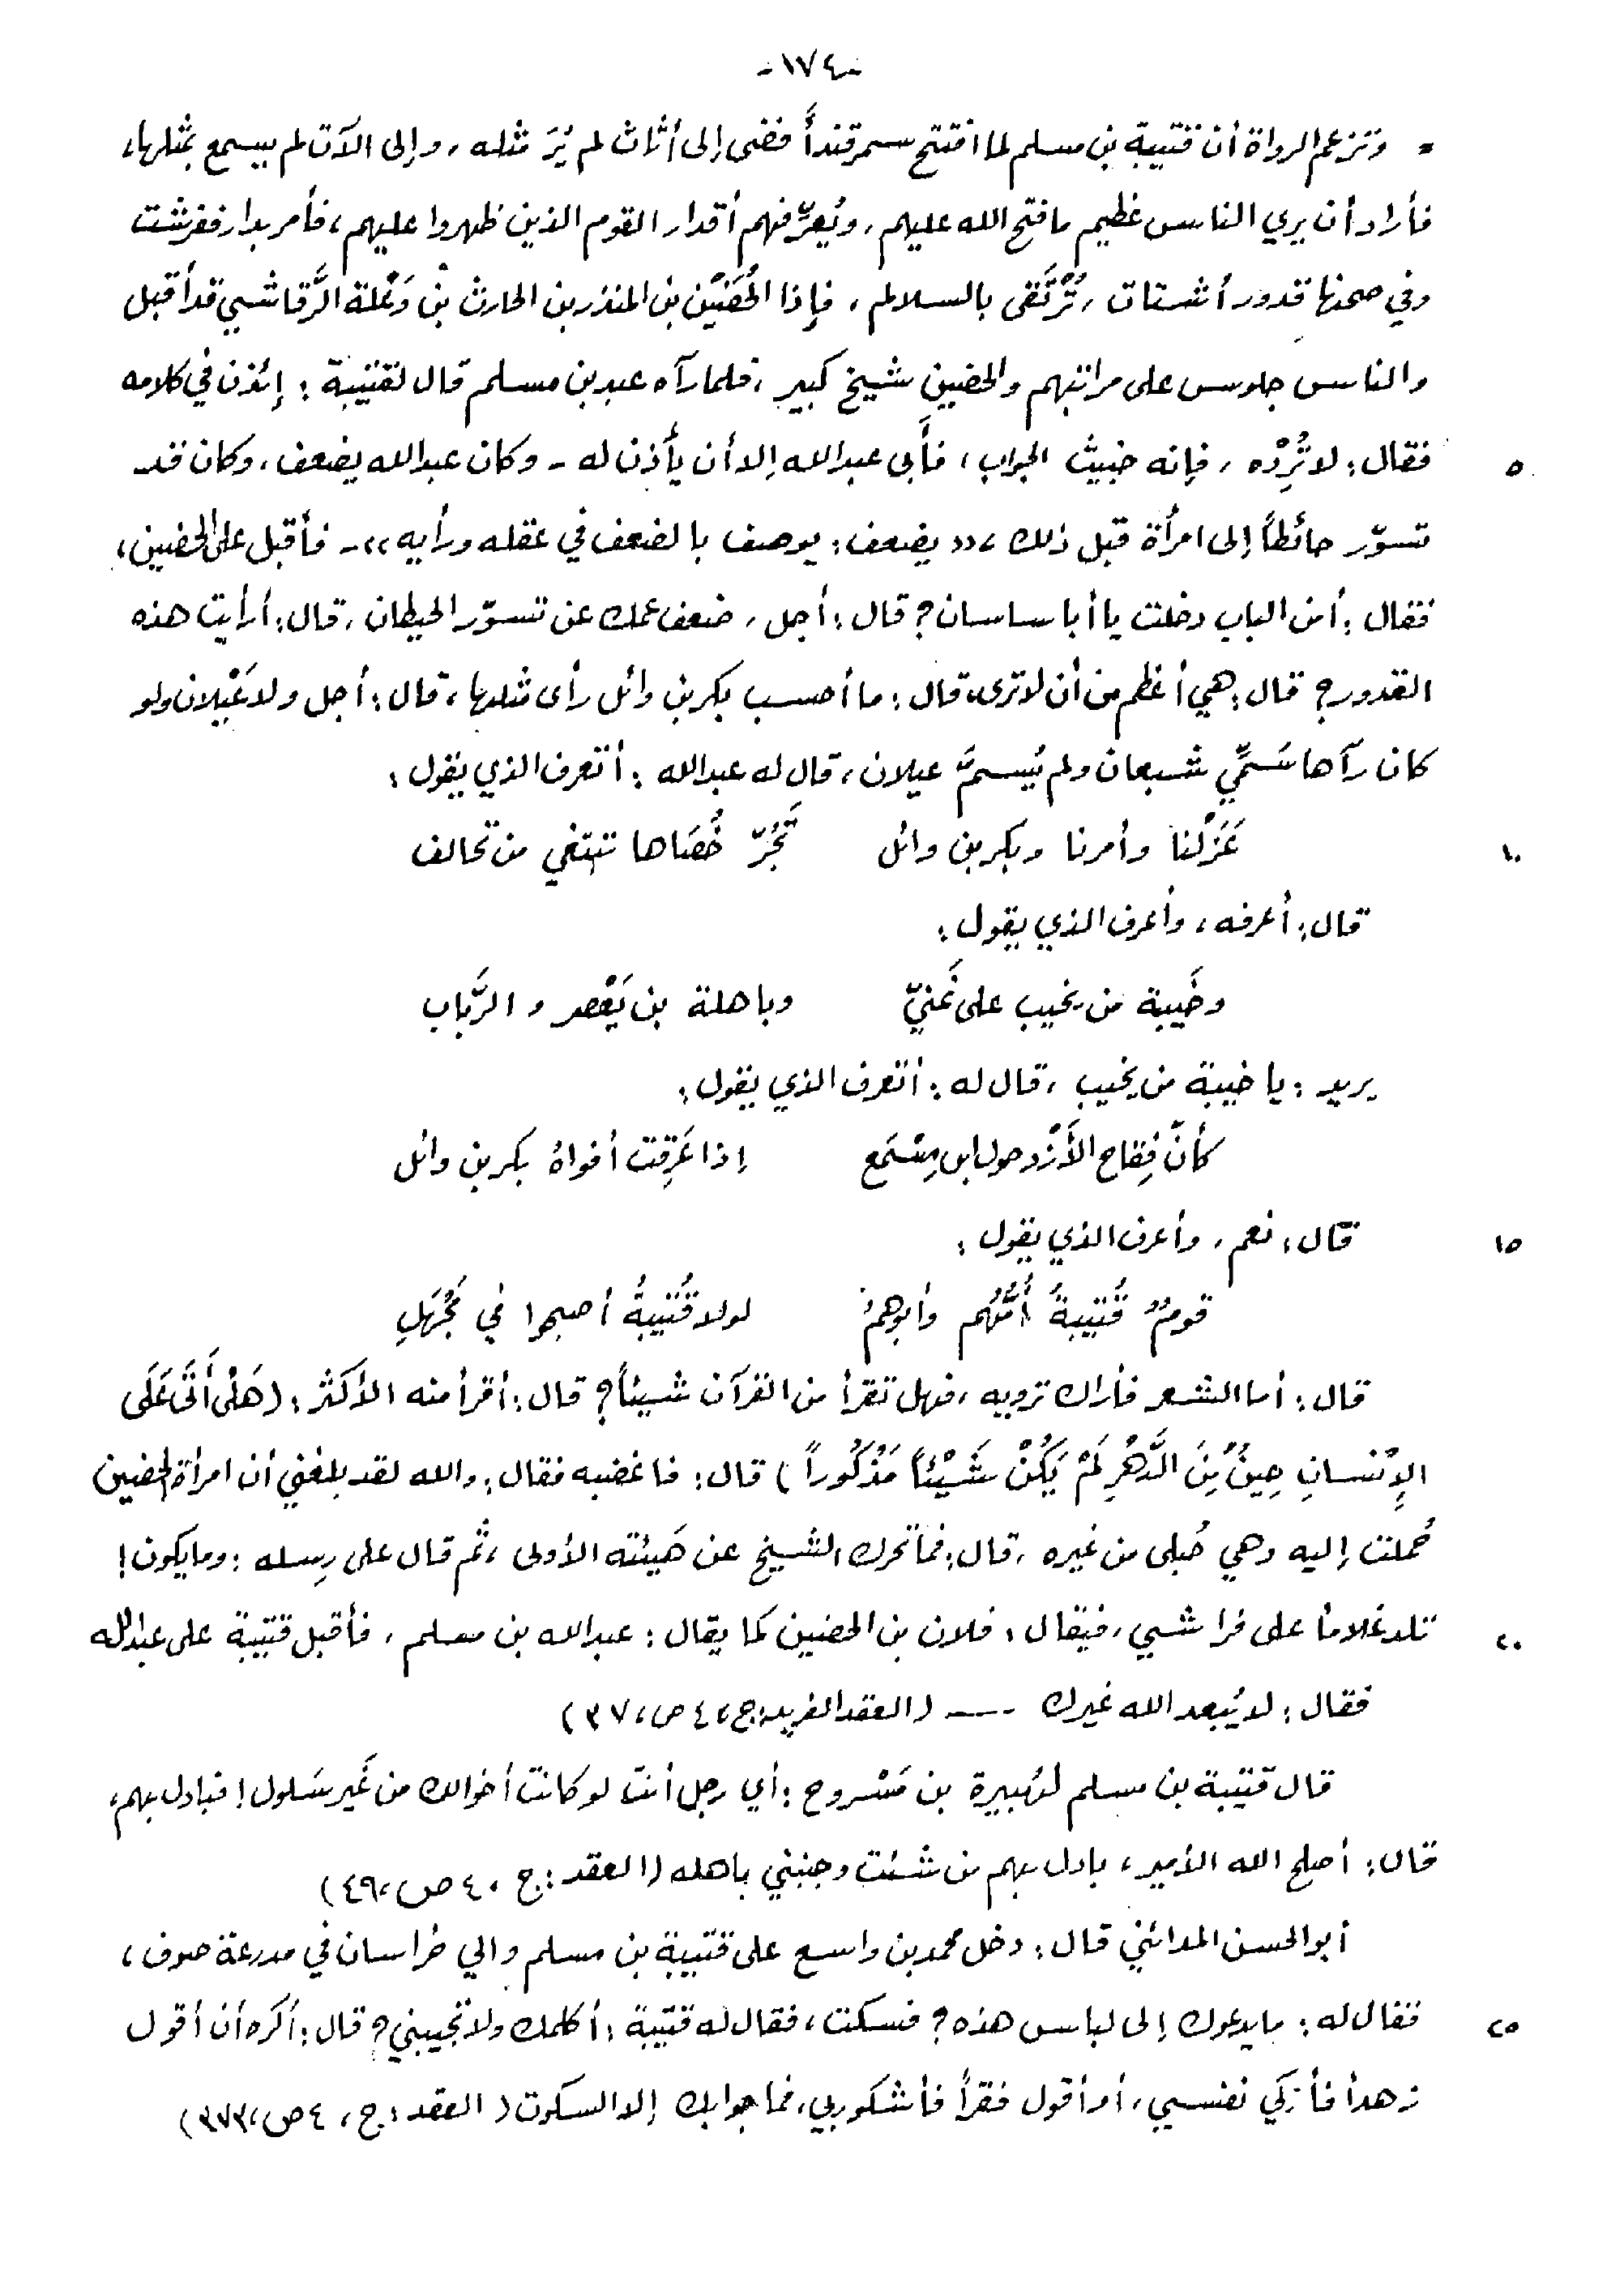 -١٧٤-
= وتزعم الرواة أن قتيبة بن مسلم لما افتتح سمرقنداً فضى إلى أثاث لم يُرَ مثله، وإلى الآت لم يسمع بمثلها،
فأراد أن يري الناس عظيم ما فتح الله عليهم، ويُعرِّفهم أقدار القوم الذين ظهروا عليهم، فأمر بدار ففرشت
وفي صحنها قدور أشتات، تُرْتَقى بالسلالم، فإذا الحُضَيْن بن المنذر بن الحارث بْن وَعْلة الرَّقاشي قد أقبل
والناس جلوس على مراتبهم والحضين شيخ كبير، فلما رآه عبد بن مسلم قال لقتيبة : إئذن في كلامه
٥ فقال: لا تُرِدْه، فإنه خبيث الجواب، فأبى عبدالله إلا أن يأذن له - وكان عبدالله يضعف، وكان قد
تسوّر حائطاً إلى امرأة قبل ذلك، «يضعف: يوصف بالضعف في عقله ورأيه»- فأقبل على الحضين،
فقال: أمن الباب دخلت يا أبا ساسان؟ قال: أجل، ضعف عمك عن تسوّر الحيطان، قال: أرأيت هذه
القدور؟ قال: هي أعظم من أن لا ترى، قال: ما أحسب بكر بن وائل رأى مثلها، قال: أجل ولا عَيْلان ولو
كان رآها سُمِّي شبعان ولم يُسمَّ عيلان، قال له عبدالله : أتعرف الذي يقول :
١٠ عَزَلْنا وأمرنا وبكر بن وائل تَجُرّ خُصَاها تبتغي من تحالف
قال: أعرفه، وأعرف الذي يقول :
وخَيبة من يخيب على غَنيّ وباهلة بن يَعْصر والرَّباب
يريد : يا خيبة من يخيب، قال له : أتعرف الذي يقول :
كأنّ فِقاح الأَزْد حول ابن مِسْمَع إذا عَرِقت أفواهُ بكر بن وائل
١٥ قال: نعم، وأعرف الذي يقول :
قومٌ قُتَيبةُ أُمُّهُم وأبوهمُ لولا قُتَيبةُ أصبحوا في مَجْهَلِ
قال: أما الشعر فأراك ترويه، فهل تقرأ من القرآن شيئاً؟ قال: أقرأ منه الأكثر : (هَلْ أَتَى عَلَى
الإِنْسانِ حِينٌ مِنَ الدَّهْرِ لَمْ يَكُنْ شَيْئاً مَذْكُوراً) قال: فاغضبه فقال: والله لقد بلغني أن امرأة الحضين
حُملت إليه وهي حُبلى من غيره، قال: فما تحرك الشيخ عن هَيئته الأولى، ثم قال على رِسله : وما يكون!
٢٠ تلد غلاماً على فراشي، فيقال: فلان بن الحضين كما يقال: عبدالله بن مسلم، فأقبل قتيبة على عبدالله
فقال: لا يُبعد الله غيرك ---- (العقد الفريد: ج، ٤ ص، ٣٧)
قال قتيبة بن مسلم لهُبيرة بن مَسْروح : أي رجل أنت لو كانت أخوالك من غَير سَلول! فبادل بهم،
قال: أصلح الله الأمير، بادل بهم من شئت وجنبني باهله (العقد: ج، ٤ ص، ٤٩)
أبو الحسن المدائني قال: دخل محمد بن واسع على قتيبة بن مسلم والي خراسان في مدرعة صوف،
٢٥ فقال له: ما يدعوك إلى لباس هذه؟ فسكت، فقال له قتيبة : أكلمك ولا تجيبني؟ قال: أكره أن أقول
زهداً فأزكي نفسي، أو أقول فقراً فأشكو ربي، فما جوابك إلا السكوت (العقد: ج، ٤ ص، ٣٧٣)